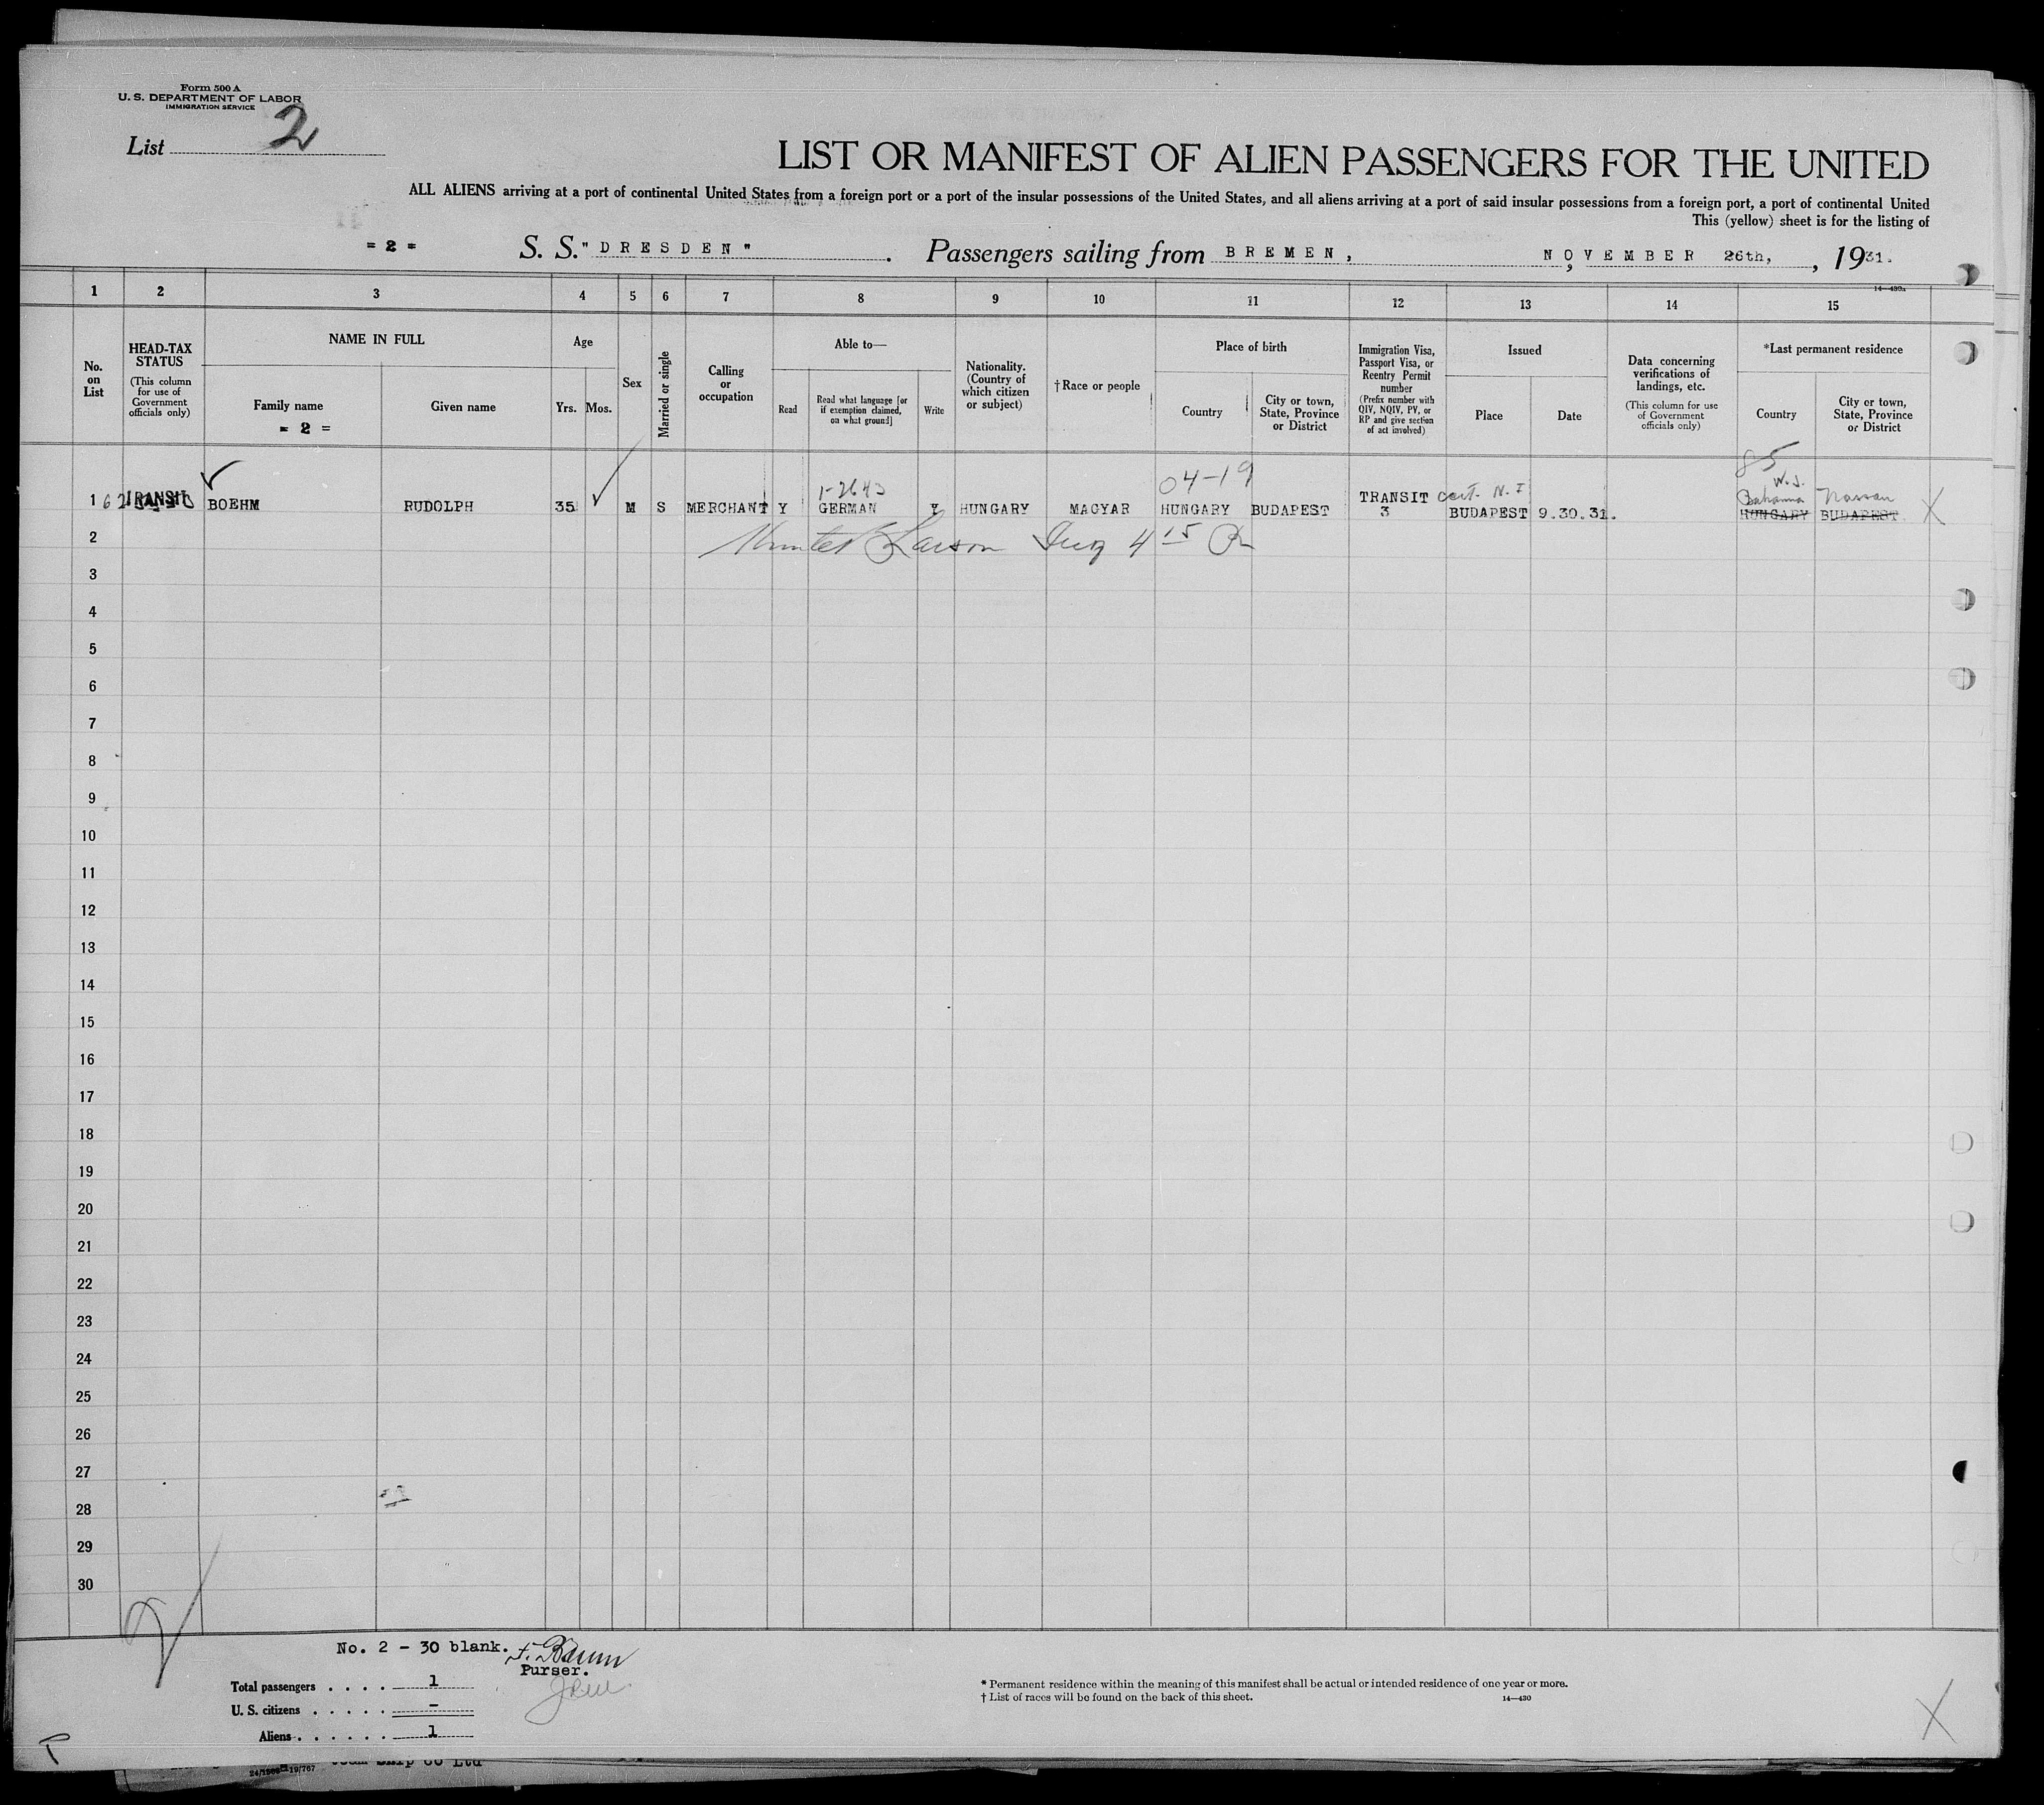 Form 500 A
U. S. DEPARTMENT OF LABOR
IMMIGRATION SERVICE
List 2
LIST OR MANIFEST OF ALIEN PASSENGERS FOR THE UNITED
ALL ALIENS arriving at a port of continental United States from a foreign port or a port of the insular possessions of the United States, and all aliens arriving at a port of said insular possessions from a foreign port, a port of continental United
This (yellow) sheet is for the listing of
= 2 = S. S. "DRESDEN". Passengers sailing from BREMEN, NOVEMBER 26th, , 1931.
14—430a
1 2 3 4 5 6 7 8 9 10 11 12 13 14 15
No. on List
HEAD-TAX STATUS
(This column for use of Government officials only)
NAME IN FULL
Family name
= 2 =
Given name
Age
Yrs. Mos.
Sex
Married or single
Calling or occupation
Able to—
Read
Read what language [or if exemption claimed, on what ground]
Write
Nationality. (Country of which citizen or subject)
†Race or people
Place of birth
Country
City or town, State, Province or District
Immigration Visa, Passport Visa, or Reentry Permit number
(Prefix number with QIV, NQIV, PV, or RP and give section of act involved)
Issued
Place
Date
Data concerning verifications of landings, etc.
(This column for use of Government officials only)
*Last permanent residence
Country
City or town, State, Province or District
85
1-2643 04-19 W. I.
Cert. N. I Bahama Nassau
1 TRANSIT BOEHM RUDOLPH 35 M S MERCHANT Y GERMAN Y HUNGARY MAGYAR HUNGARY BUDAPEST TRANSIT 3 BUDAPEST 9.30.31. HUNGARY BUDAPEST X
2 Larson
3
4
5
6
7
8
9
10
11
12
13
14
15
16
17
18
19
20
21
22
23
24
25
26
27
28
29
30
No. 2 - 30 blank. F. Baum
Purser.
Total passengers . . . . 1
U. S. citizens . . . . . –
Aliens . . . . . . 1
* Permanent residence within the meaning of this manifest shall be actual or intended residence of one year or more.
† List of races will be found on the back of this sheet.
14—430
X
24/1566 19/767
Ship Co Ltd